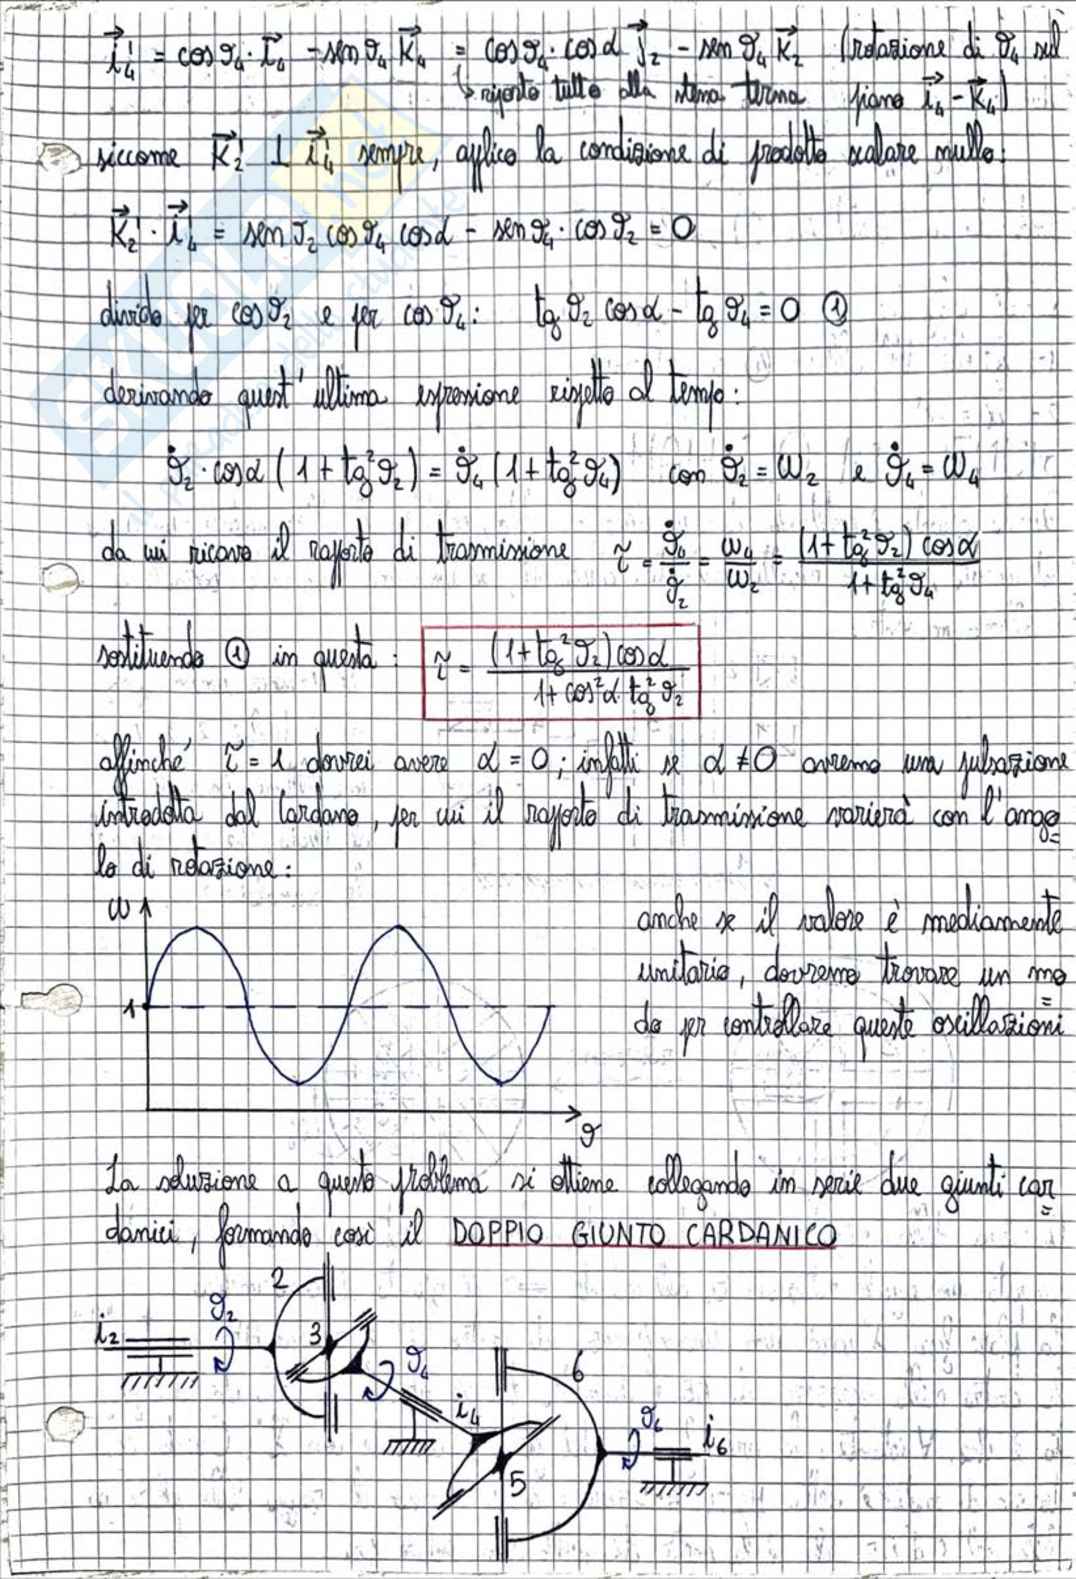 i⃗₄' = cosϑ₄·i⃗₄ - senϑ₄ k⃗₄ = cosϑ₄·cosα j⃗₂ - senϑ₄ k⃗₂ (rotazione di ϑ₄ sul
↳ riporto tutto alla stessa terna piano i⃗₄ - k⃗₄)
siccome k⃗₂' ⊥ i⃗₄' sempre, applico la condizione di prodotto scalare nullo:
k⃗₂' · i⃗₄' = senϑ₂ cosϑ₄ cosα - senϑ₄·cosϑ₂ = 0
divido per cosϑ₂ e per cosϑ₄: tgϑ₂ cosα - tgϑ₄ = 0 ①
derivando quest'ultima espressione rispetto al tempo:
ϑ̇₂·cosα (1 + tg²ϑ₂) = ϑ̇₄ (1 + tg²ϑ₄) con ϑ̇₂ = ω₂ e ϑ̇₄ = ω₄
da cui ricavo il rapporto di trasmissione τ = ϑ̇₄/ϑ̇₂ = ω₄/ω₂ = (1+tg²ϑ₂) cosα / 1+tg²ϑ₄
sostituendo ① in questa: τ = (1+tg²ϑ₂) cosα / 1+cos²α tg²ϑ₂
affinché τ = 1 dovrei avere α = 0; infatti se α ≠ 0 avremo una pulsazione
introdotta dal Cardano, per cui il rapporto di trasmissione varierà con l'ango=
lo di rotazione:
ω
1
ϑ
anche se il valore è mediamente
unitario, dovremo trovare un mo=
do per controllare queste oscillazioni
La soluzione a questo problema si ottiene collegando in serie due giunti car=
danici, formando così il DOPPIO GIUNTO CARDANICO
2
i₂ ϑ₂ 3 ϑ₄ i₄
6
ϑ₆ i₆
5